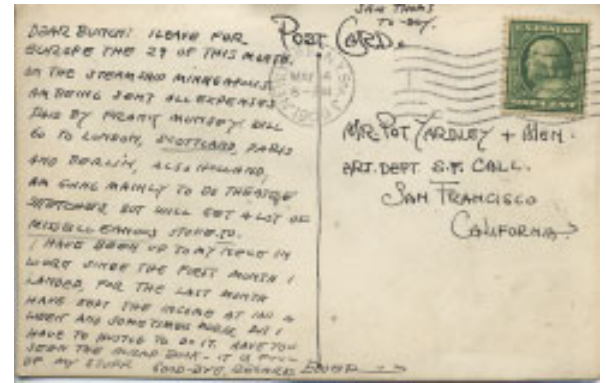 SAW THOMS
TO-DAY.
POST CARD.
DEAR BUNCH: I LEAVE FOR
EUROPE THE 29 OF THIS MONTH.
ON THE STEAMSHIP MINNEAPOLIS.
AM BEING SENT ALL EXPENSES
PAID BY FRANK MUNSEY. WILL
GO TO LONDON, SCOTTLAND, PARIS
AND BERLIN, ALSO HOLLAND,
AM GOING MAINLY TO DO THEATRE
SKETCHES BUT WILL GET A LOT OF
MISSELLEANOUS STUFF.TO.
I HAVE BEEN UP TO MY NECK IN
WORK SINCE THE FIRST MONTH I
LANDED, FOR THE LAST MONTH
HAVE KEPT THE INCOME AT 100 A
WEEK AND SOMETIMES MORE BUT I
HAVE TO HUSTLE TO DO IT. HAVE YOU
SEEN THE BOOK - IT IS FULL
OF MY STUFF. GOOD-BYE, REGARDS
MR. POT YARDLEY + MEN.
ART. DEPT S.F. CALL.
SAN FRANCISCO
CALIFORNIA
MAY